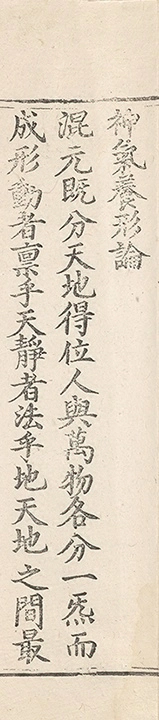 神氣養形論
混元既分天地得位人與萬物各分一炁而
成形動者禀乎天靜者法乎地天地之間最